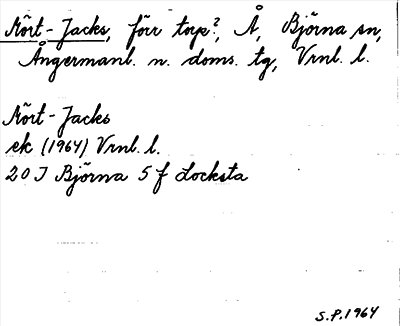 Kôrt-Jacks, förr torp?, Å, Björna sn,
Ångermanl. n. doms. tg, Vrnl. l.
Kôrt-Jacks
ek (1964) Vrnl. l.
20 J Björna 5 f Locksta
S.P. 1964